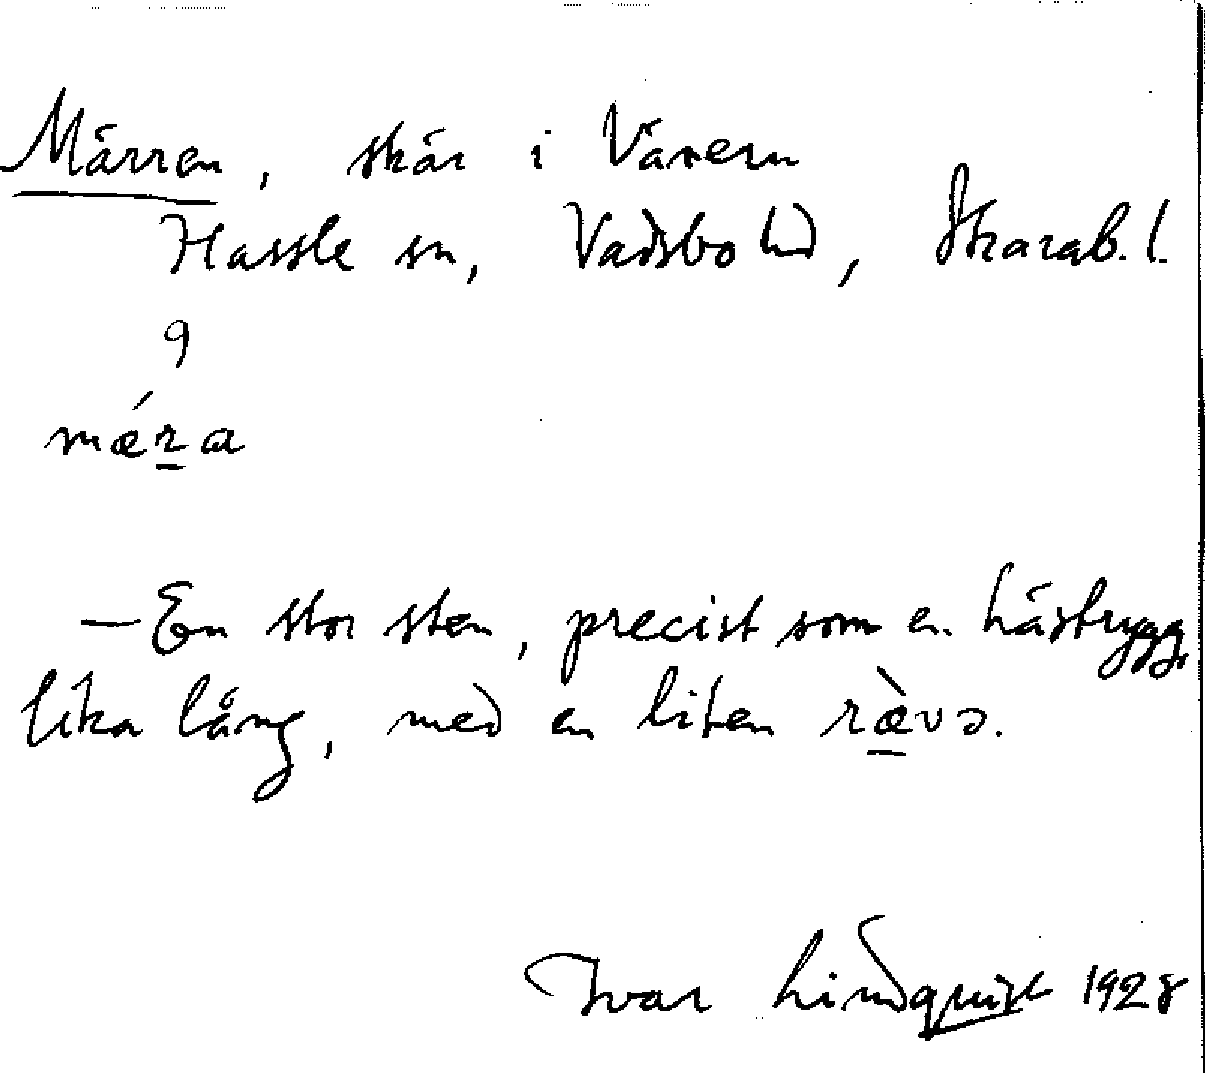 Märren, skär i Vänern
Hassle sn, Vadsbo hd, Skarab. l.
9
mǽr̲a
— En stor sten, precist som en hästrygg,
lika lång, med en liten ræ̲̀və.
Ivar Lindquist 1928